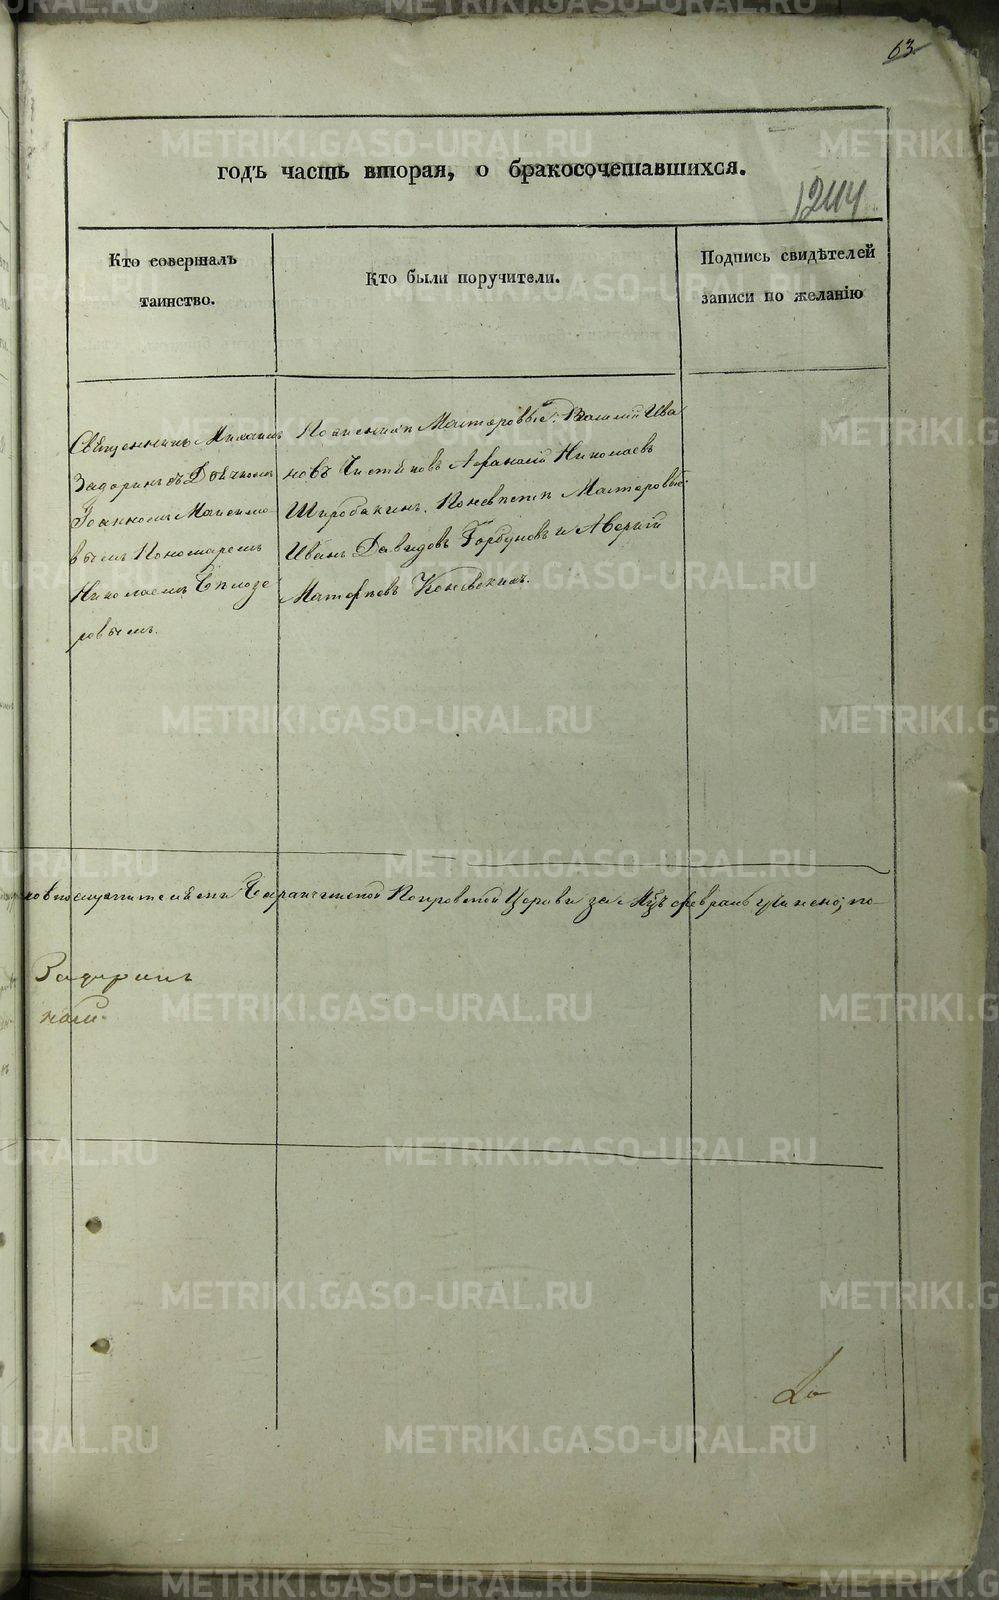 63
годъ часть вторая, о бракосочетавшихся.
1244
Кто совершалъ таинство.
Кто были поручители.
Подпись свидѣтелей записи по желанію
Священникъ Михаилъ
Задоринъ съ Дьячкомъ
Іоанномъ
вымъ Пономаремъ
Николаемъ Бѣлозе
ровымъ.
Мастеровые: Василій Ива
новъ Чистяковъ Афанасій Николаевъ
Широбакинъ. Мастеровые
Иванъ Давыдовъ Горбуновъ и Аверкій
Матфеевъ Коневскихъ.
Баранчинской Покровской Церкви за Мцъ февраль
Задоринъ
METRIKI.GASO-URAL.RU